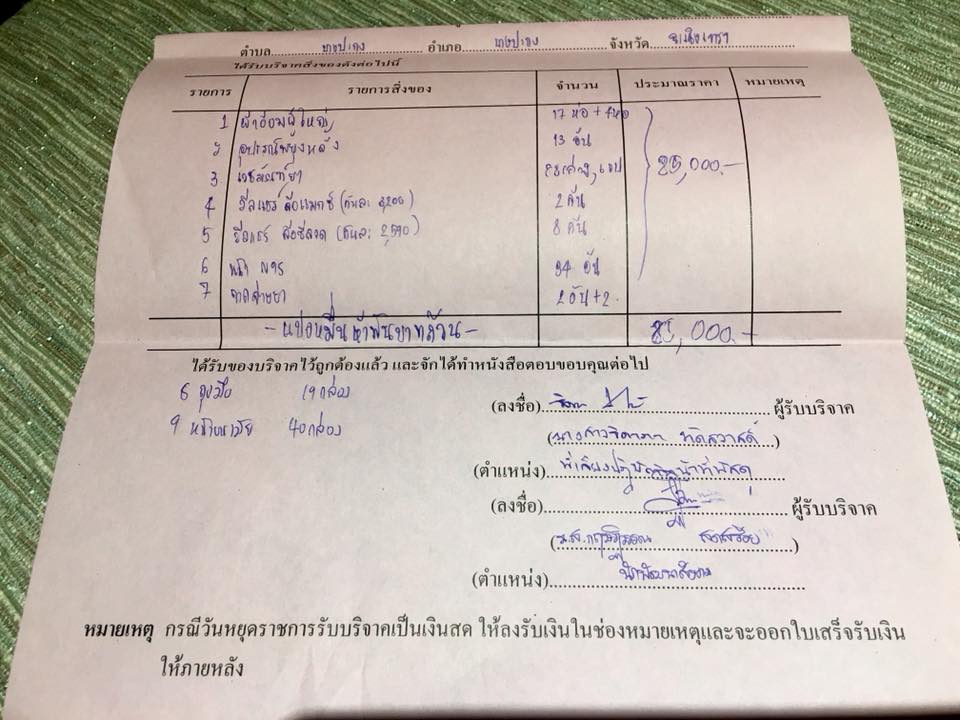 ตำบล บางปะกง อำเภอ บางปะกง จังหวัด ฉะเชิงเทรา
ได้รับบริจาคสิ่งของดังต่อไปนี้
รายการ รายการสิ่งของ จำนวน ประมาณราคา หมายเหตุ
1 ผ้าอ้อมผู้ใหญ่ 17 ห่อ +
2 อุปกรณ์พยุงหลัง 13 อัน
3. เวชภัณฑ์ยา 25,000.-
4 วีลแชร์ ล้อแมกซ์ (คันละ 2 คัน
5 วีลแชร์ ล้อซี่ลวด (คันละ 2,590) 8 คัน
6 34 อัน
7 ถาดใส่ยา 2 อัน + 2
- แปดหมื่นห้าพันบาทถ้วน - 85,000.-
ได้รับของบริจาคไว้ถูกต้องแล้ว และจักได้ทำหนังสือตอบขอบคุณต่อไป
8 ถุงมือ 19 กล่อง
9 หน้ากากอนามัย 40 กล่อง
(ลงชื่อ) ผู้รับบริจาค
(นางสาว )
(ตำแหน่ง)
(ลงชื่อ) ผู้รับบริจาค
(น.ส. )
(ตำแหน่ง) นักพัฒนาสังคม
หมายเหตุ กรณีวันหยุดราชการรับบริจาคเป็นเงินสด ให้ลงรับเงินในช่องหมายเหตุและจะออกใบเสร็จรับเงิน
ให้ภายหลัง